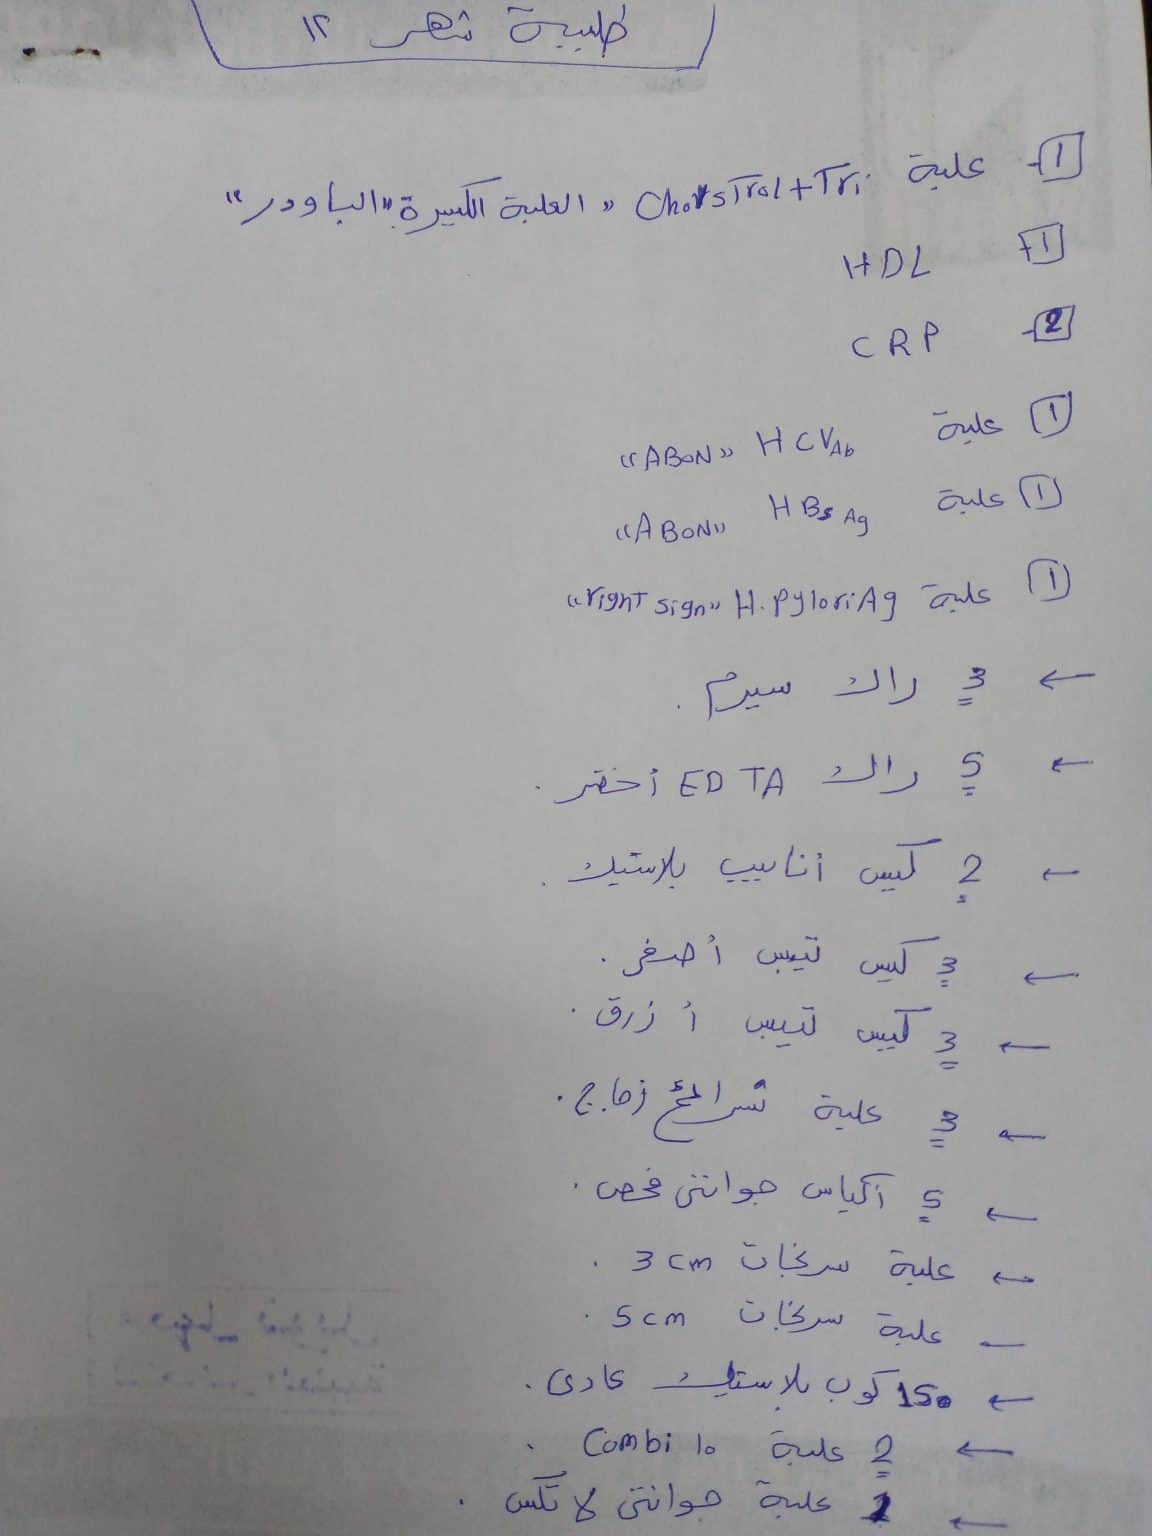 طلبية شهر ١٢
1- علبة Cholestrol + Tri "العلبة الكبيرة" "الباودر"
1- HDL
2- CRP
1 علبة HCV Ab "ABON"
1 علبة HBs Ag "ABON"
1 علبة H.Pylori Ag "right sign"
← 3 راك سيرم .
← 5 راك EDTA أخضر .
← 2 كيس أنابيب بلاستيك .
← 3 كيس تيبس أصفر .
← 3 كيس تيبس أزرق .
← 3 علبة شرائح زجاج .
← 5 أكياس جوانتى فحص .
← علبة سرنجات 3cm .
← علبة سرنجات 5cm .
← 150 كوب بلاستيك عادى .
← 2 علبة Combi 10 .
← 1 علبة جوانتى لاتكس .